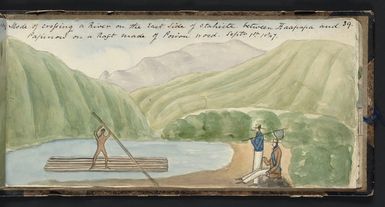 Mode of crossing a River on the East side of Otaheite between Haapapa and 39.
Papinoo on a Raft made of Poison wood. Septr 1st 1847.